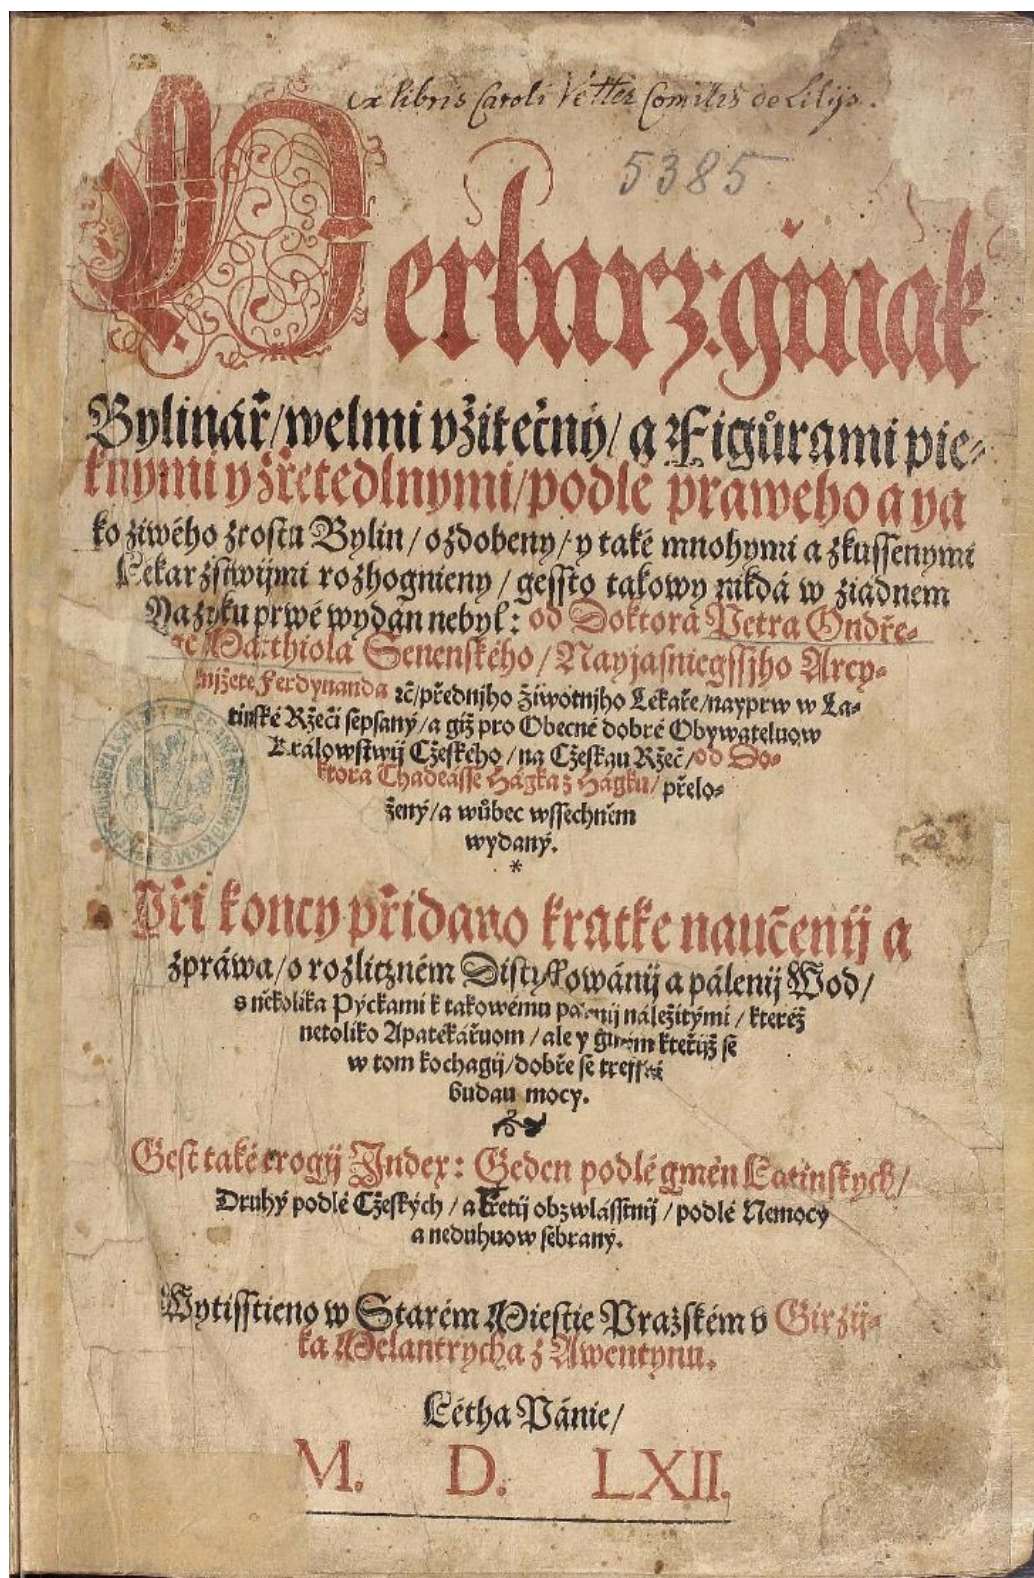 ex libris Caroli Vetter Comitis de Lilijs.
5385
Herbarz: ginak
Bylinář/ welmi vžitečný/ a Figůrami pie-
knymi y zřetedlnymi/ podlé praweho a ya
ko žiwého zrostu Bylin/ ozdobeny/ y také mnohymi a zkussenymi
Lékařzstwijmi rozhognieny/ gessto takowy nikdá w žiadnem
Yazyku prwé wydán nebyl: od Doktora Petra Ondře-
ge Matthiola Senenského/ Nayjasniegssjho Arcy-
knjžete Ferdynanda ꝛč/ přednjho žiwotnjho Lékaře/ nayprw w La-
tinské Ržeči sepsaný/ a giž pro Obecné dobré Obywateluow
Králowstwij Cžeského/ na Cžeskau Ržeč/ od Do-
ktora Thadeásse Hágka z Hágku/ přelo-
žený/ a wůbec wssechněm
wydaný.
*
Při koncy přidano kratke naučenij a
zpráwa/ o rozliczném Distyllowánij a pálenij Wod/
s několika Pýckami k takowému pálenij náležitými/ kteréž
netoliko Apatékářuom/ ale y giným kteřijž se
w tom kochagij/ dobře se treffiti
budau mocy.
Gest také trogij Index: Geden podlé gmén Latinskych/
Druhý podlé Cžeských/ a Třetij obzwlásstnij/ podlé Nemocy
a neduhuow sebraný.
Wytisstieno w Starém Miestie Pražském v Giržij-
ka Melantrycha z Awentynu.
Létha Pánie/
M. D. LXII.